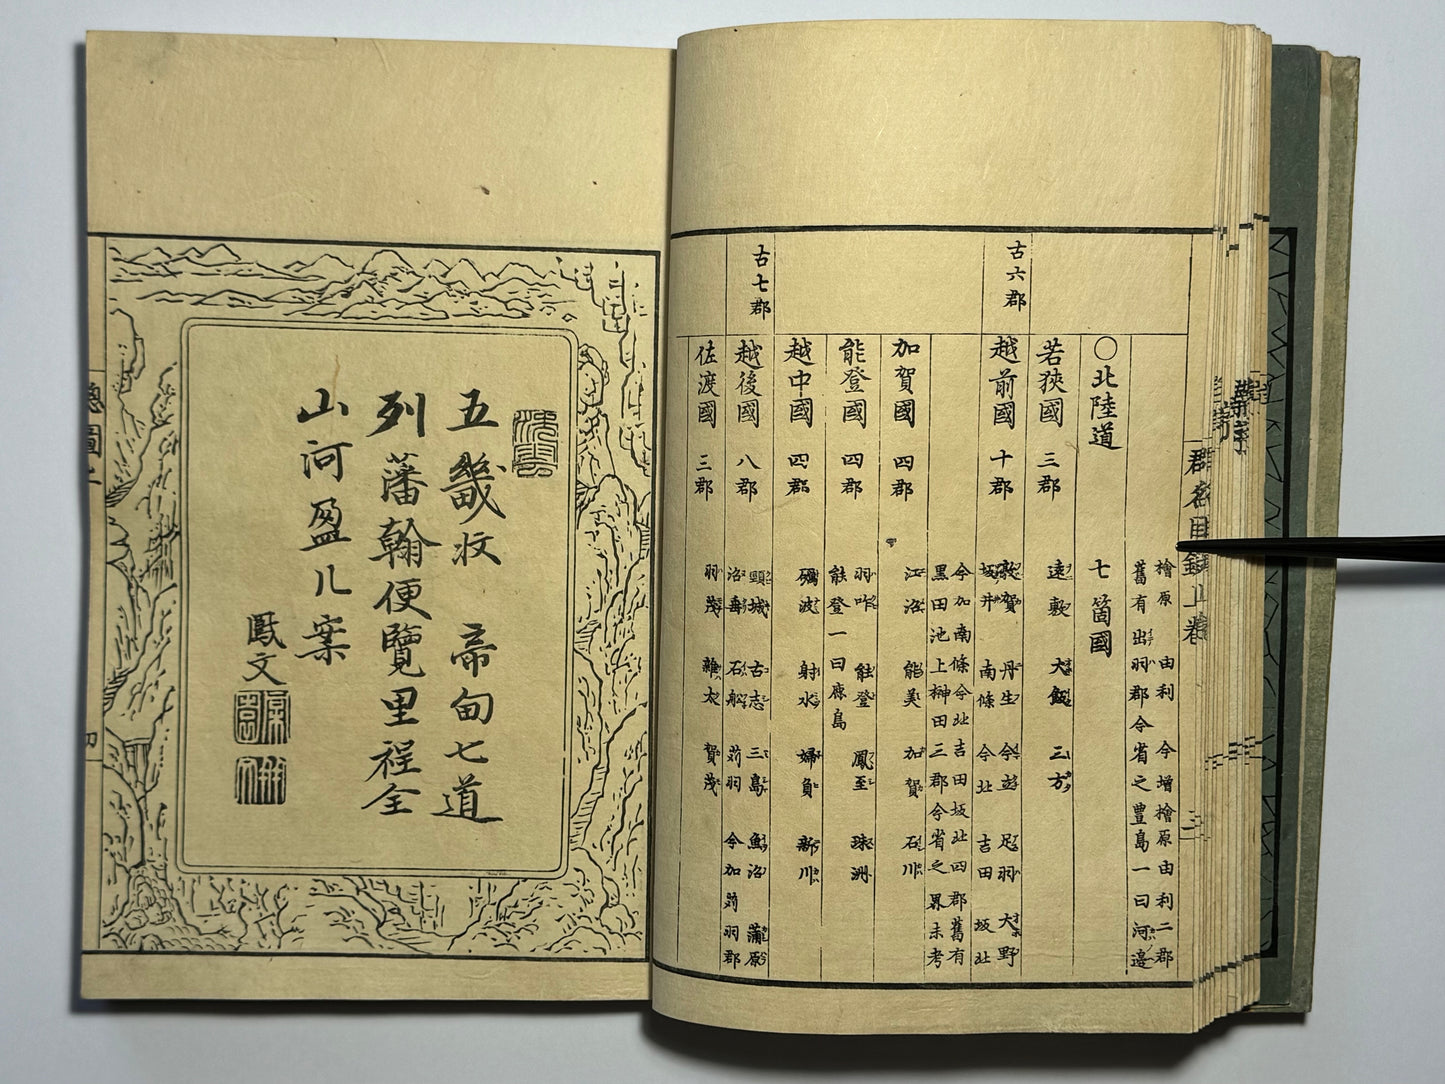 檜原 由利 今增檜原由利二郡
舊有出羽郡今省之豊島一曰河邉
○北陸道 七箇國
若狹國 三郡 遠敷 大飯 三方
古六郡
越前國 十郡 敦賀 丹生 今立 足羽 大野
坂井 南條 今北 吉田 坂北
今加南條今北吉田坂北四郡舊有
黒田池上榊田三郡今省之界未考
加賀國 四郡 江沼 能美 加賀 石川
能登國 四郡 羽咋 能登 鳳至 珠洲
能登一曰鹿島
越中國 四郡 礪波 射水 婦負 新川
古七郡
越後國 八郡 頸城 古志 三島 魚沼 蒲原
沼垂 石船 苅羽 今加苅羽郡
佐渡國 三郡 羽茂 雜太 賀茂
群名目錄上卷
五畿 帝甸七道
列藩翰便覽里程全
山河盈几案
鳳文
總圖